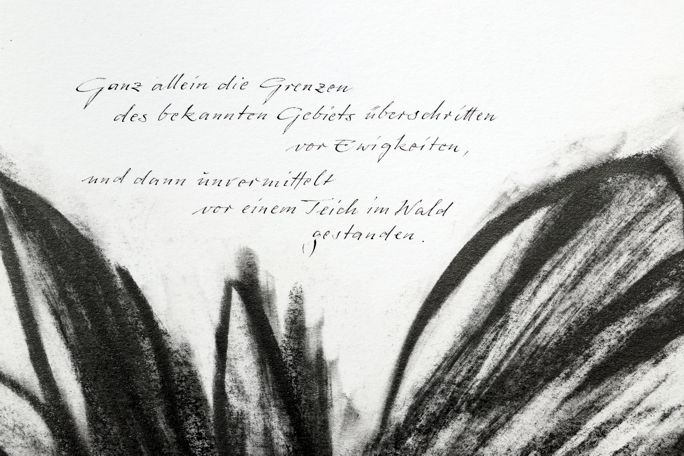 Ganz allein die Grenzen
des bekannten Gebiets überschritten
vor Ewigkeiten,
und dann unvermittelt
vor einem Teich im Wald
gestanden.